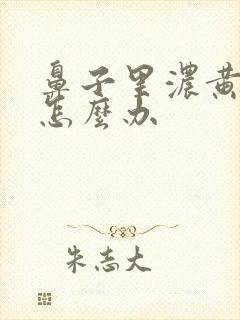 鼻子里濃黃
怎麼办
朱志大